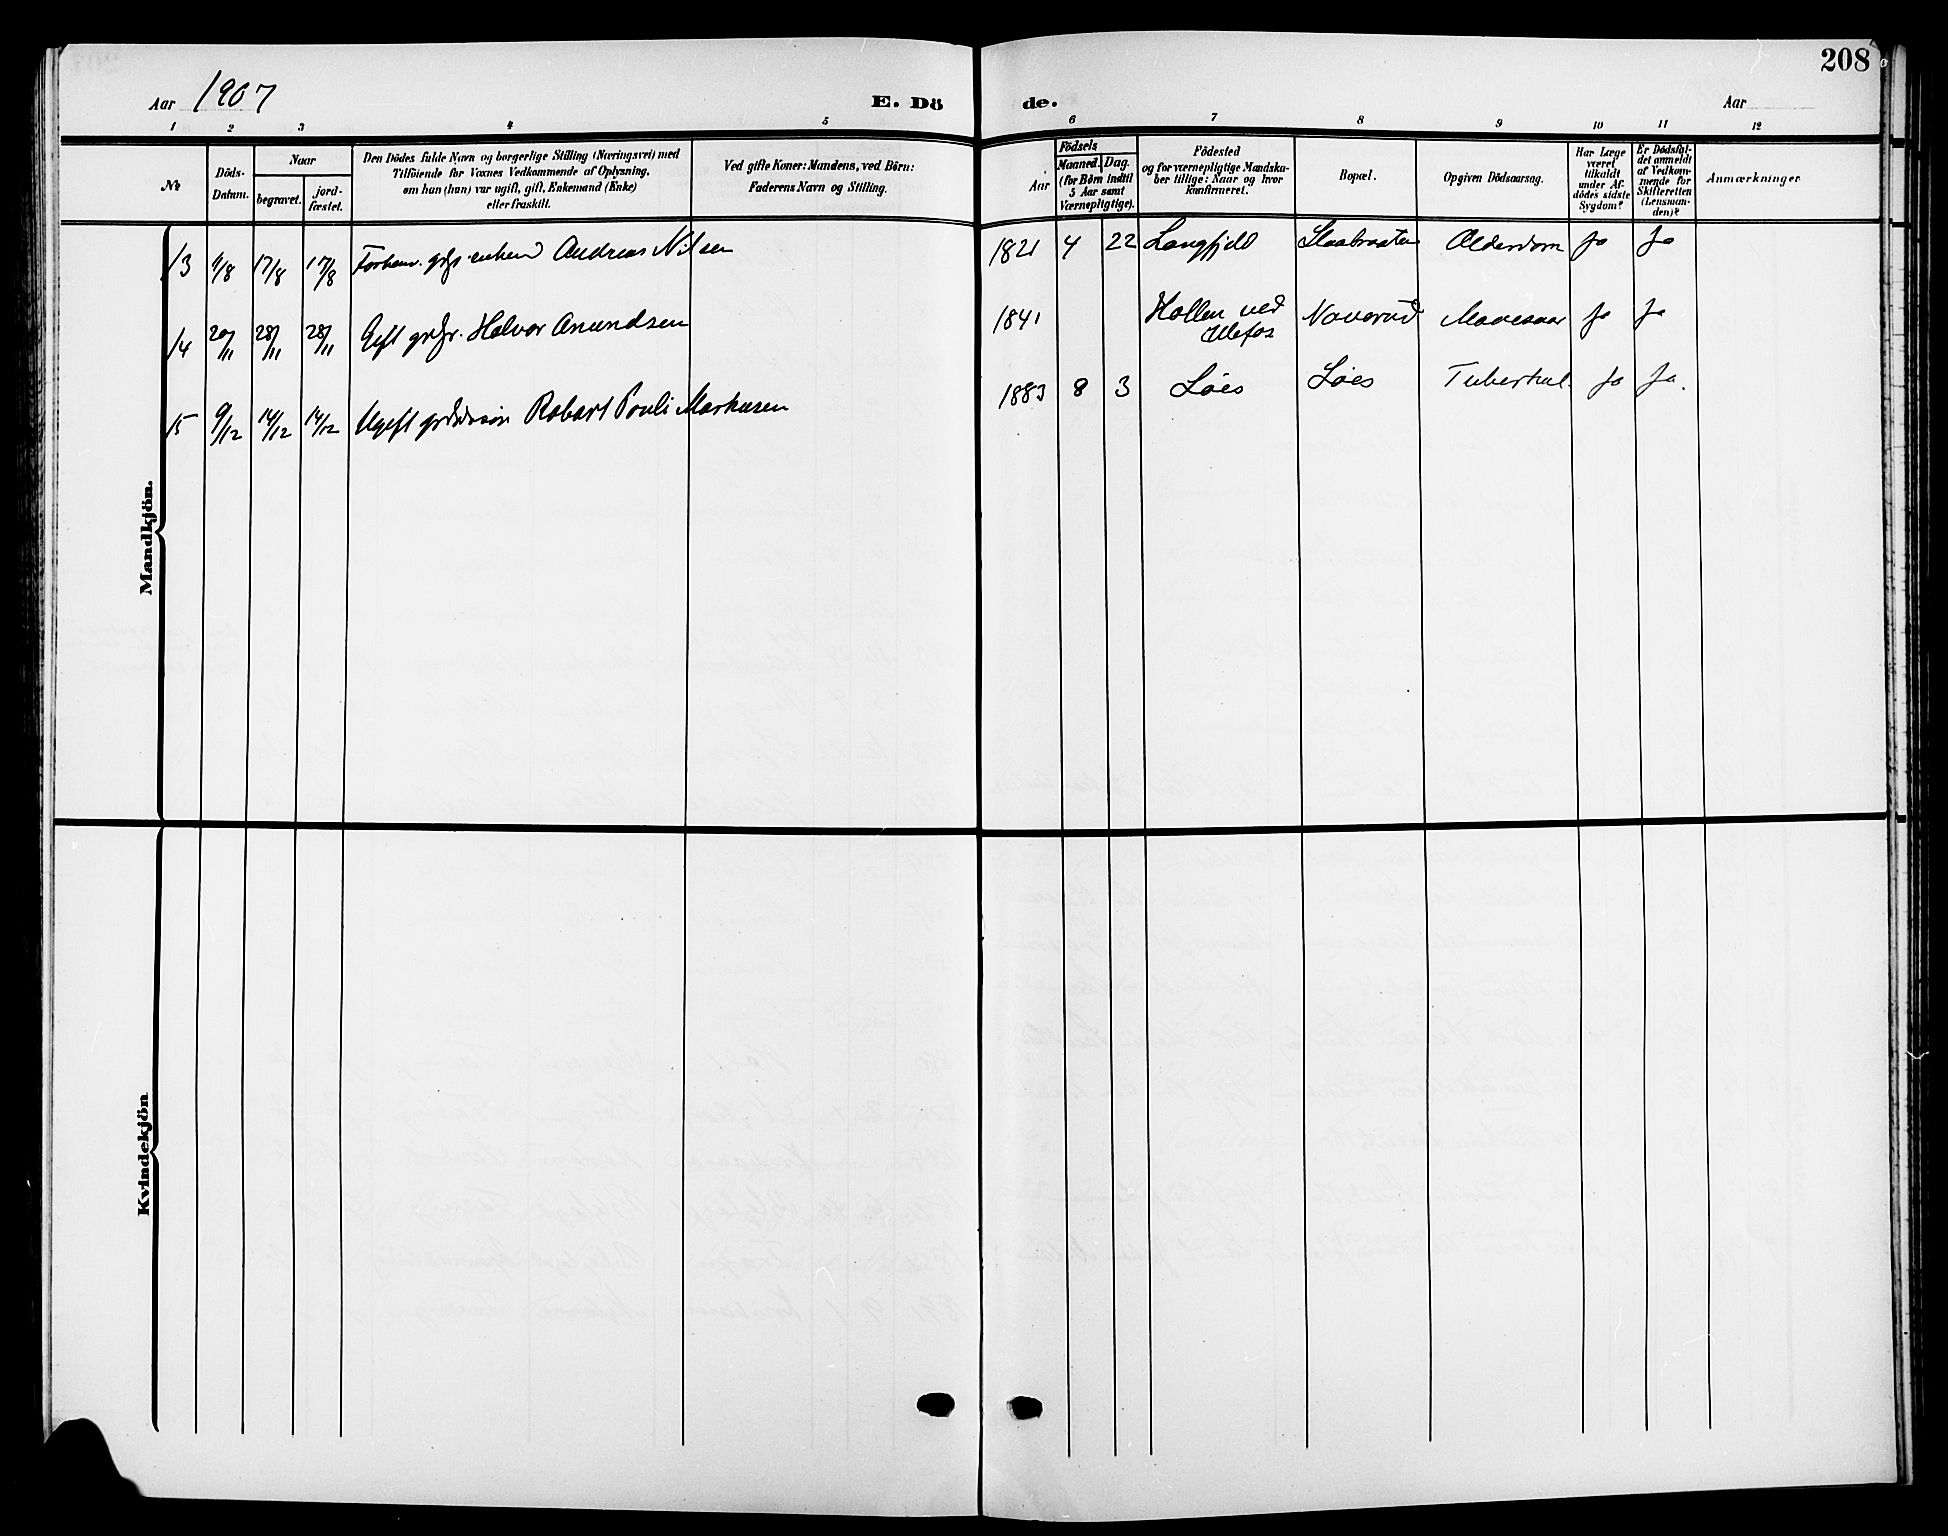 208
Aar 1907
E. Dö
de.
Aar
1 2 3 4 5 6 7 8 9 10 11 12
No
Döds-
Datum.
Naar
begravet.
jord-
fæstet.
Den Dödes fulde Navn og borgerlige Stilling (Næringsvei) med
Tilföiende for Voxnes Vedkommende af Oplysning,
om han (hun) var ugift, gift, Enkemand (Enke)
eller fraskilt.
Ved gifte Koner: Mandens, ved Börn:
Faderens Navn og Stilling.
Födsels
Aar
Maaned.
Dag.
(for Börn indtil
5 Aar samt
Værnepligtige).
Födested
og for værnepligtige Mandska-
ber tillige: Naar og hvor
konfirmeret.
Bopæl.
Opgiven Dödsaarsag.
Har Læge
været
tilkaldt
under Af-
dödes sidste
Sygdom?
Er Dödsfal-
det anmeldt
af Vedkom-
mende for
Skifteretten
(Lensman-
den)?
Anmærkninger
Mandkjön.
13 11/8 17/8 17/8 Andreas Nilsen 1821 4 22 Langfjeld Alderdom Ja Ja
14 20/11 28/11 28/11 Gift Halvor Anundsen 1841 Hollen ved
Ulefos Ja Ja
15 9/12 14/12 14/12 Ugift Robert Pauli Markusen 1883 8 3 Löes Löes Tuberkul. Ja Ja.
Kvindekjön